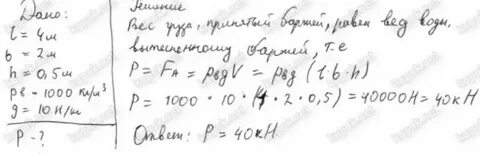 Дано:
l = 4м
b = 2м
h = 0,5м
ρв = 1000 кг/м³
g = 10 Н/кг
P - ?
Решение
Вес груза, принятый баржей, равен вес воды,
вытесненному баржей, т.е
P = FA = ρвgV = ρвg (l·b·h)
P = 1000 · 10 · (4 · 2 · 0,5) = 40000Н = 40кН
Ответ: P = 40кН